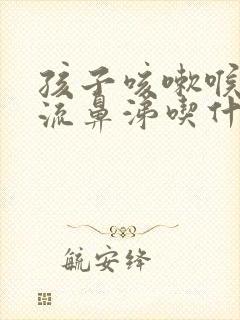 孩子咳嗽喉
流鼻涕喫什
航安绛